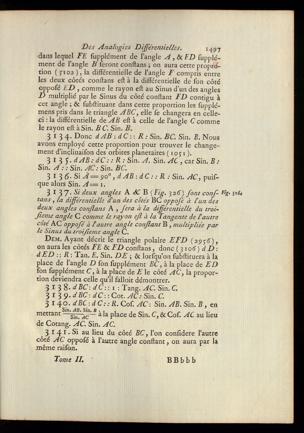 Des Analogies Différentielles. 1497
dans lequel FE supplément de l'angle A, & FD supplé-
ment de l'angle B seront constans; on aura cette propor-
tion (3102), la différentielle de l'angle F compris entre
les deux côtés constans est à la différentielle de son côté
opposé ED, comme le rayon est au Sinus d'un des angles
D multiplié par le Sinus du côté constant FD contigu à
cet angle; & substituant dans cette proportion les supplé-
mens pris dans le triangle ABC, elle se changera en celle-
ci: la différentielle de AB est à celle de l'angle C comme
le rayon est à Sin. BC Sin. B.
3134. Donc dAB : dC :: R : Sin. BC. Sin. B. Nous
avons employé cette proportion pour trouver le change-
ment d'inclinaison des orbites planetaires (1051).
3135. dAB : dC :: R : Sin. A. Sin. AC, car Sin. B :
Sin. A :: Sin. AC : Sin. BC.
3136. Si A = 90°, dAB : dC :: R : Sin. AC, puis-
que alors Sin. A = 1.
3137. Si deux angles A & B (Fig. 326) sont cons- Fig. 326.
tans, la différentielle d'un des côtés BC opposé à l'un des
deux angles constans A, sera à la différentielle du troi-
sieme angle C comme le rayon est à la Tangente de l'autre
côté AC opposé à l'autre angle constant B, multipliée par
le Sinus du troisieme angle C.
DEM. Ayant décrit le triangle polaire EFD (2956),
on aura les côtés FE & FD constans, donc (3106) dD :
dED :: R : Tan. E. Sin. DE; & lorsqu'on substituera à la
place de l'angle D son supplément BC, à la place de ED
son supplément C, à la place de E le côté AC, la propor-
tion deviendra celle qu'il falloit démontrer.
3138. dBC : dC :: 1 : Tang. AC. Sin. C.
3139. dBC : dC :: Cot. AC : Sin. C.
3140. dBC : dC :: R. Cos. AC : Sin. AB. Sin. B, en
mettant Sin. AB. Sin. B / Sin. AC à la place de Sin. C, & Cos. AC au lieu
de Cotang. AC. Sin. AC.
3141. Si au lieu du côté BC, l'on considere l'autre
côté AC opposé à l'autre angle constant, on aura par la
même raison.
Tome II. BBbbb